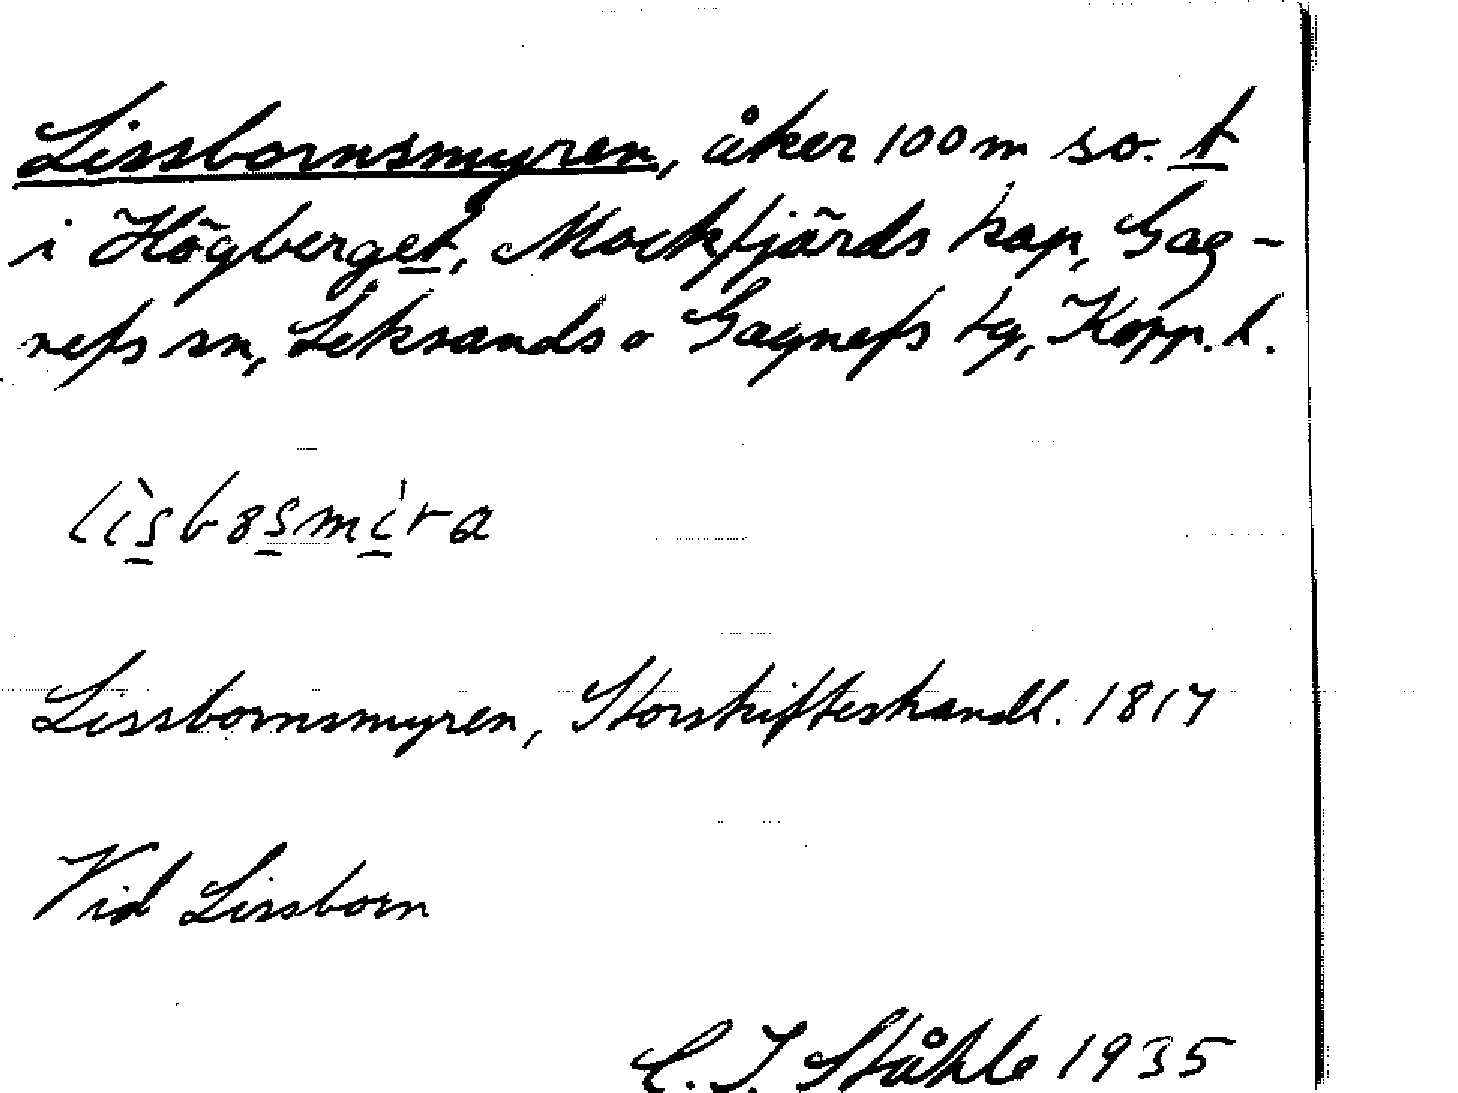 Lissbornsmyren, åker 100 m so. t
i Högberget, Mockfjärds kap, Gag-
nefs sn, Leksands o Gagnefs tg, Kopp. l.
lìsb8smi̍ra
Lissbornsmyren, Storskifteshandl. 1817
Vid Lissborn
C. I. Ståhle 1935